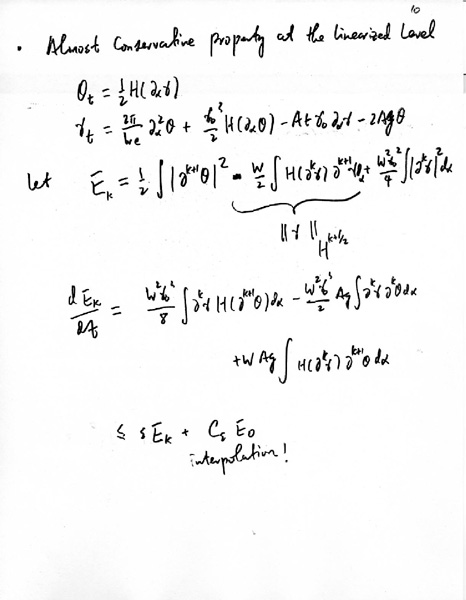 10
• Almost Conservative property at the linearized level
θ_t = 1/2 H(∂_α γ)
γ_t = 2π/We ∂_α² θ + γ_0²/2 H(∂_α θ) - At γ_0 ∂_α γ - 2Ag θ
let E_k = 1/2 ∫ |∂^{k+1} θ|² - W/2 ∫ H(∂^k γ) ∂^{k+1} γ dα + W² γ_0²/4 ∫ |∂^k γ|² dα
‖γ‖_{H^{k+1/2}}
dE_k/dt = W² γ_0²/8 ∫ ∂^k γ H(∂^{k+1} θ) dα - W² γ_0²/2 Ag ∫ ∂^k γ ∂^k θ dα
+ W Ag ∫ H(∂^k γ) ∂^{k+1} θ dα
≤ δ E_k + C_δ E_0
interpolation!